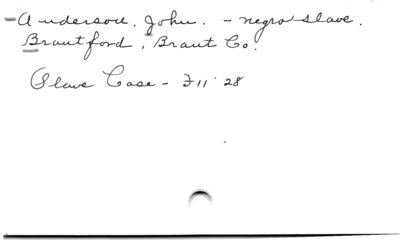 Anderson, John. - negro slave.
Brantford, Brant Co.
Slave Case - F11 28